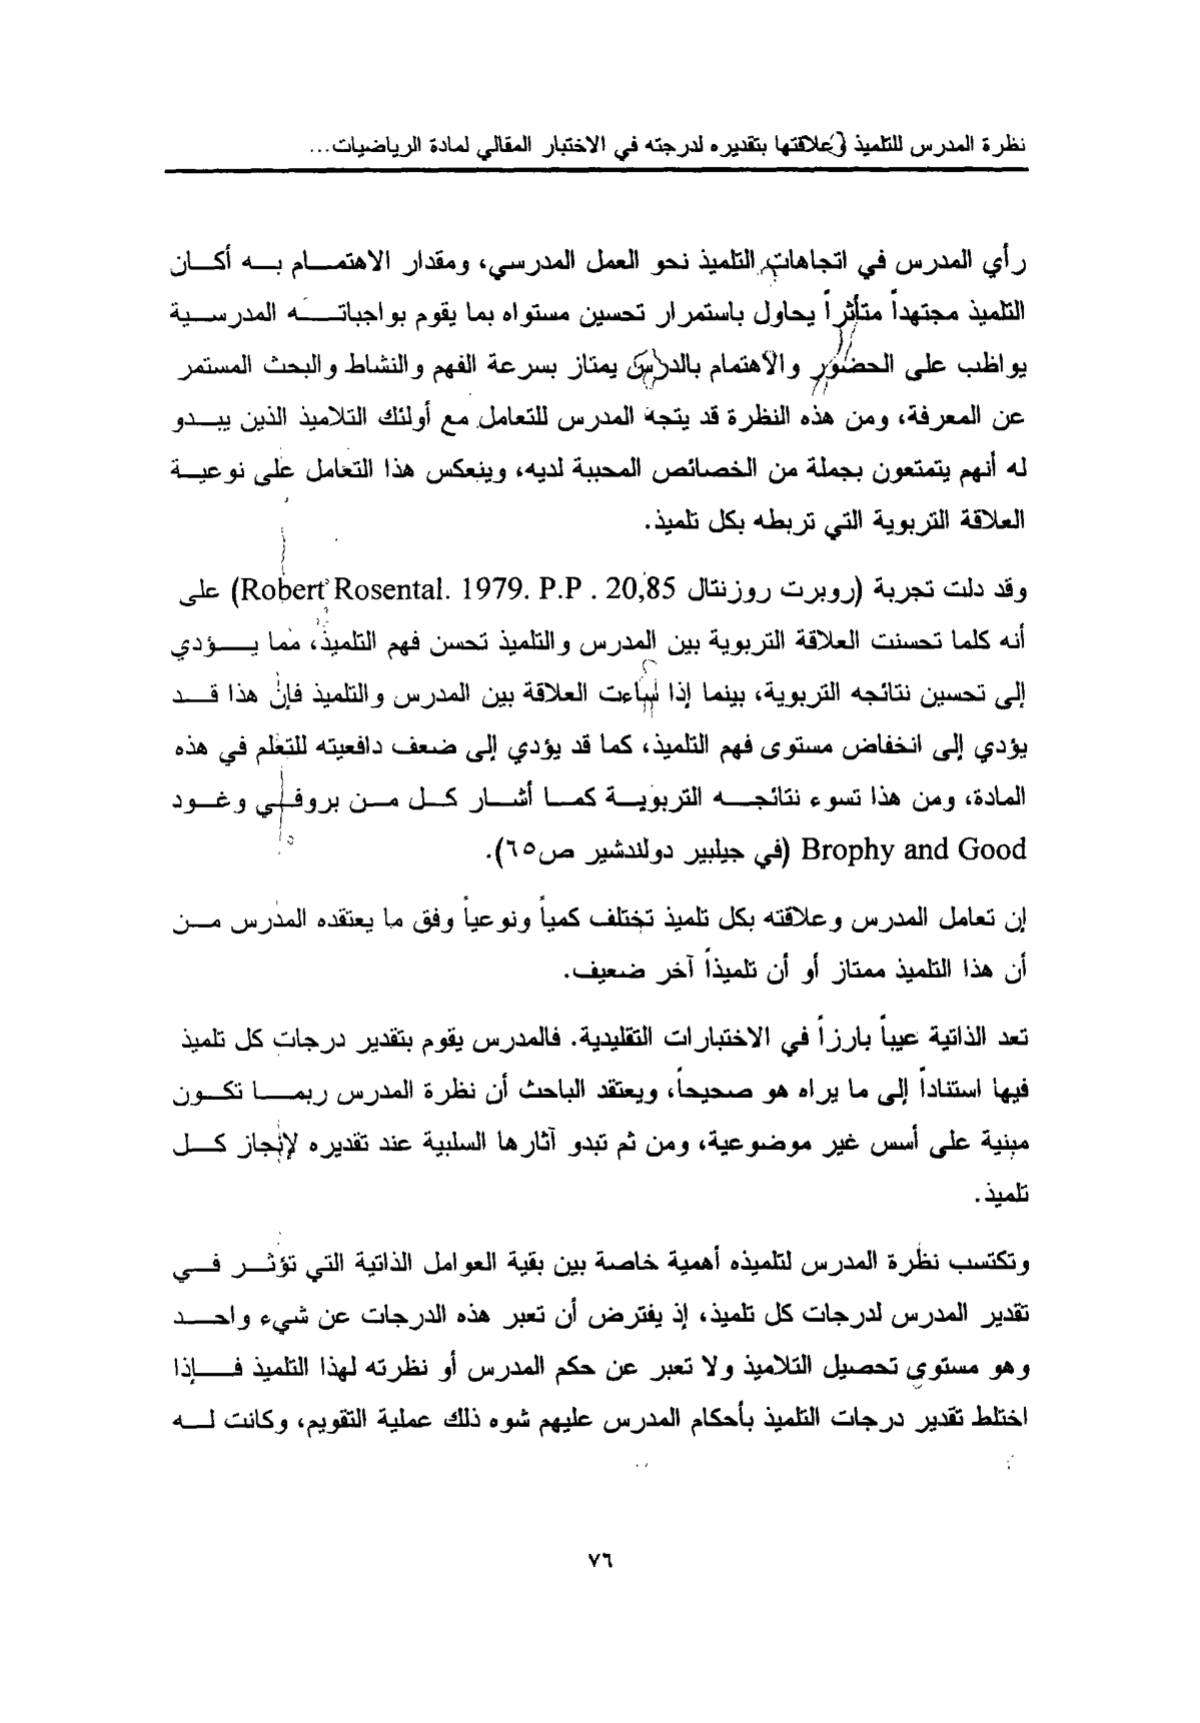 نظرة المدرس للتلميذ وعلاقتها بتقديره لدرجته في الاختبار المقالي لمادة الرياضيات...
رأي المدرس في اتجاهات التلميذ نحو العمل المدرسي، ومقدار الاهتمام به أكان
التلميذ مجتهداً متأثراً يحاول باستمرار تحسين مستواه بما يقوم بواجباته المدرسية
يواظب على الحضور والاهتمام بالدرس يمتاز بسرعة الفهم والنشاط والبحث المستمر
عن المعرفة، ومن هذه النظرة قد يتجه المدرس للتعامل مع أولئك التلاميذ الذين يبدو
له أنهم يتمتعون بجملة من الخصائص المحببة لديه، وينعكس هذا التعامل على نوعية
العلاقة التربوية التي تربطه بكل تلميذ.
وقد دلت تجربة (روبرت روزنتال Robert Rosental. 1979. P.P . 20,85) على
أنه كلما تحسنت العلاقة التربوية بين المدرس والتلميذ تحسن فهم التلميذ، مما يؤدي
إلى تحسين نتائجه التربوية، بينما إذا ساءت العلاقة بين المدرس والتلميذ فإن هذا قد
يؤدي إلى انخفاض مستوى فهم التلميذ، كما قد يؤدي إلى ضعف دافعيته للتعلم في هذه
المادة، ومن هذا تسوء نتائجه التربوية كما أشار كل من بروفي وغود
Brophy and Good (في جيلبير دولندشير ص٦٥).
إن تعامل المدرس وعلاقته بكل تلميذ تختلف كمياً ونوعياً وفق ما يعتقده المدرس من
أن هذا التلميذ ممتاز أو أن تلميذاً آخر ضعيف.
تعد الذاتية عيباً بارزاً في الاختبارات التقليدية. فالمدرس يقوم بتقدير درجات كل تلميذ
فيها استناداً إلى ما يراه هو صحيحاً، ويعتقد الباحث أن نظرة المدرس ربما تكون
مبنية على أسس غير موضوعية، ومن ثم تبدو آثارها السلبية عند تقديره لإنجاز كل
تلميذ.
وتكتسب نظرة المدرس لتلميذه أهمية خاصة بين بقية العوامل الذاتية التي تؤثر في
تقدير المدرس لدرجات كل تلميذ، إذ يفترض أن تعبر هذه الدرجات عن شيء واحد
وهو مستوى تحصيل التلاميذ ولا تعبر عن حكم المدرس أو نظرته لهذا التلميذ فإذا
اختلط تقدير درجات التلميذ بأحكام المدرس عليهم شوه ذلك عملية التقويم، وكانت له
٧٦